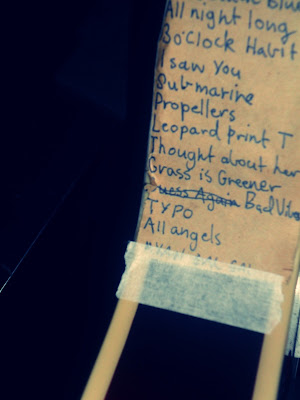 Blu
All night long
3 o'Clock Habit
I saw You
Submarine
Propellers
Leopard print T
Thought about her
Grass is Greener
Guess Again Bad Vibes
TYPO
All angels